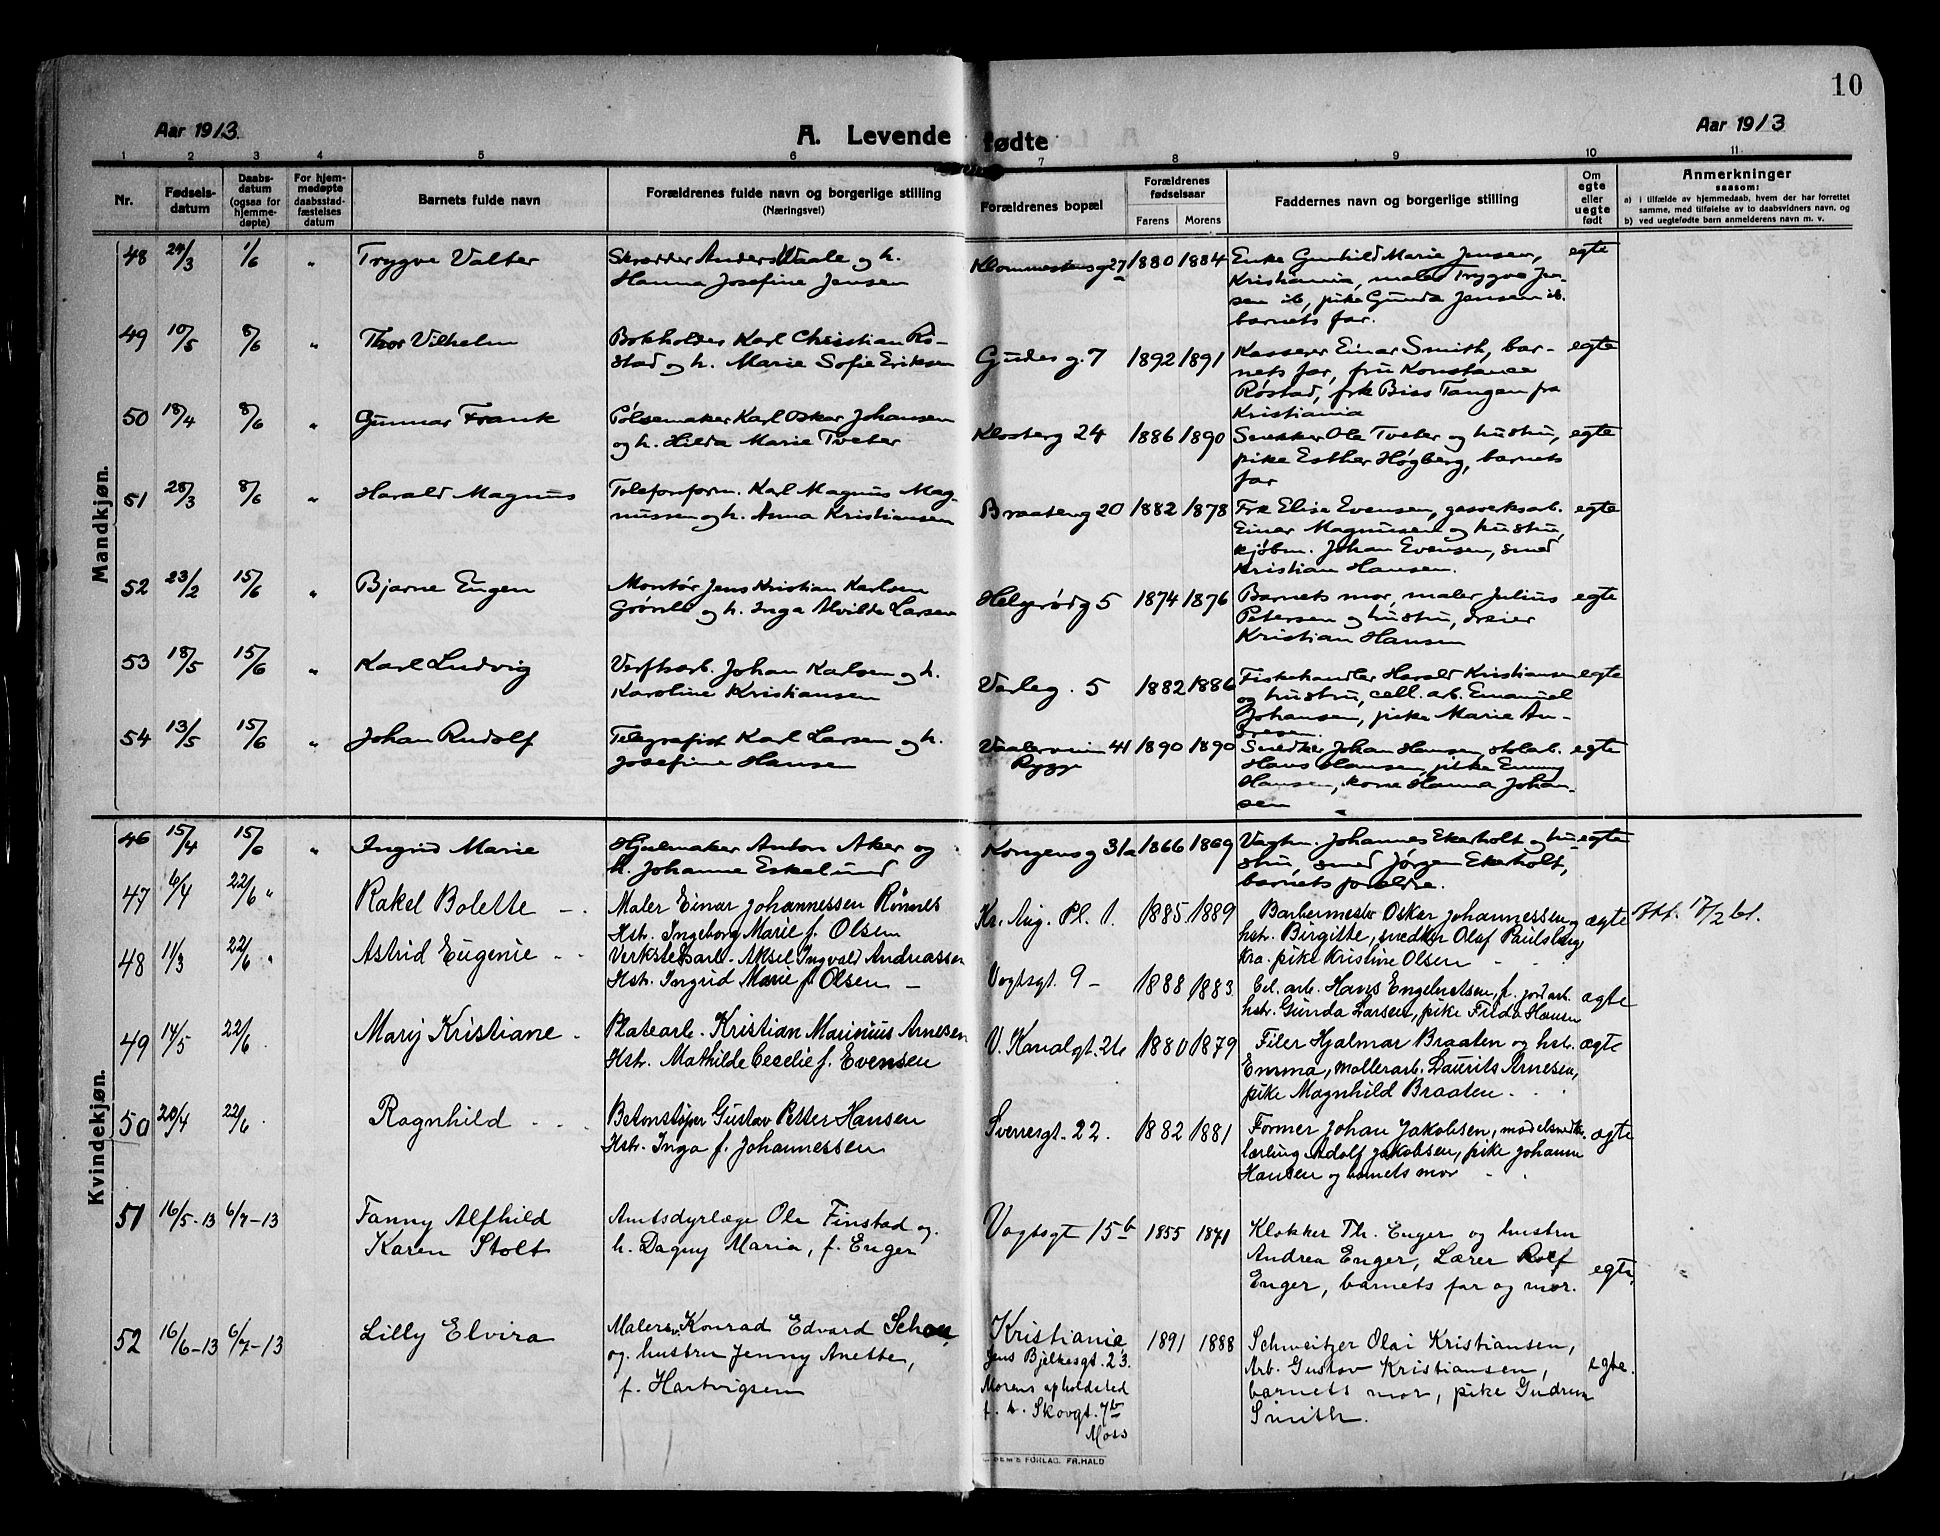 10
Aar 1913.
A. Levende fødte
Aar 1913
1 2 3 4 5 6 7 8 9 10 11
Nr.
Fødsels-
datum
Daabs-
datum
(ogsaa for
hjemme-
døpte)
For hjem-
medøpte
daabsstad-
fæstelses
datum
Barnets fulde navn
Forældrenes fulde navn og borgerlige stilling
(Næringsvei)
Forældrenes bopæl
Forældrenes
fødselsaar
Farens Morens
Faddernes navn og borgerlige stilling
Om
egte
eller
uegte
født
Anmerkninger
saasom:
a) i tilfælde av hjemmedaab, hvem der har forrettet
samme, med tilføielse av to daabsvidners navn, og
b) ved uegtefødte barn anmelderens navn m. v.
Mandkjøn.
48 24/3 1/6 " Trygve Valter
Skrædder Anders Waale og h.
Hanna Josefine Jensen
27a 1880 1884
Enke Gunhild Marie Jensen,
Kristiania, maler Trygve Jen-
sen ib, pike Gunda Jensen ib.
barnets far.
egte
49 10/5 8/6 " Thor Vilhelm
Bokholder Karl Christian Rø-
stad og h. Marie Sofie Eriksen
Gudes g. 7 1892 1891
Kasserer Einar Smith, bar-
nets far, fru Konstance
Røstad, frk Biss Tangen fra
Kristiania
egte
50 18/4 8/6 " Gunnar Frank
Pølsemaker Karl Oskar Johansen
og h. Hilda Marie Tveter
Klosterg 24 1886 1890
Snekker Ole Tveter og hustru,
pike Esther Høgberg, barnets
far
egte
51 28/3 8/6 " Harald Magnus
Telefonform. Karl Magnus Mag-
nussen og h. Anna Kristiansen
Braateng 20 1882 1878
Frk Elise Evensen, gasverksarb.
Einar Magnusen og hustru,
kjøbm. Johan Evensen, smed
Kristian Hansen.
egte
52 23/2 15/6 " Bjarne Eugen
Montør Jens Kristian Karlsen
Grønli og h. Inga Alvilde Larsen
Helgerødg 5 1874 1876
Barnets mor, maler Julius
Petersen og hustru, dreier
Kristian Hansen
egte
53 18/5 15/6 " Karl Ludvig
Verftsarb. Johan Karlsen og h.
Karoline Kristiansen
Varleg. 5 1882 1886
Fiskehandler Harald Kristiansen
og hustru, cell. arb. Emanuel
Johansen, pike Marie An-
dresen.
egte
54 13/5 15/6 " Johan Rudolf
Telegrafist Karl Larsen og h.
Josefine Hansen
Vaalerveien 41
Rygge
1890 1890
Snedker Johan Hansen,
Hans Hansen, pike Emmy
Hansen, kone Hanna Johan-
sen
egte
Kvindekjøn.
46 15/4 15/6 " Ingrid Marie
Hjulmaker Anton Aker og
h. Johanne Eskelund
Kongensg 31a 1866 1869
Vogtm. Johannes Ekerholt og hu-
stru, smed Jørgen Ekerholt,
barnets foreldre.
egte
47 6/4 22/6 " Rakel Bolette
Maler Einar Johannessen Rønnes
Hstr. Ingeborg Marie f. Olsen
Kr. Aug. Pl. 1. 1885 1889
Barbermester Oskar Johannessen og
hstr. Birgitte, snedker Olaf Paulsberg,
Kra. pike Kristine Olsen
ægte
17/2 61.
48 11/3 22/6 " Astrid Eugenie
Verkstedsarb. Aksel Ingvald Andreassen
Hstr. Ingrid Marie f. Olsen
Vogtsgt. 9 1888 1883
Cel. arb. Hans Engebretsen, f. jordarb.
hstr. Gunda Larsen, pike Frida Hansen
ægte
49 14/5 22/6 Marij Kristiane
Platearb. Kristian Marinius Arnesen
Hstr. Mathilde Cecelie f. Evensen
V. Kanalgt. 26 1880 1879
Filer Hjalmar Braaten og hstr.
Emma, møllerarb. Laurits Arnesen,
pike Magnhild Braaten
ægte
50 20/4 22/6 Ragnhild
Betonstøper Gustav Petter Hansen
Hstr. Inga f. Johannessen
Sverresgt. 22. 1882 1881
Former Johan Jakobsen, modelsnedk.
lærling Adolf Jakobsen, pike Johanne
Hansen og barnets mor
ægte
51 16/5-13 6/7-13 Fanny Alfhild
Karen Stolt
Amtsdyrlæge Ole Finstad og
h. Dagny Maria, f. Enger
Vogtsgt 15b 1855 1871
Klokker Th. Enger og hustru
Andrea Enger, Lærer Rolf
Enger, barnets far og mor.
egte
52 16/6-13 6/7-13 Lilly Elvira
Malersv. Konrad Edvard Schou,
og hustru Jenny Anette,
f. Hartvigsen
Kristiania
Jens Bjelkesgt. 23.
Morens opholdsted
f. t. Skovgt. 7b
Moss
1891 1888
Schweitzer Olai Kristiansen,
Arb. Gustav Kristiansen,
barnets mor, pike Gudrun
Smith.
egte.
FORLAG. FR. HALD